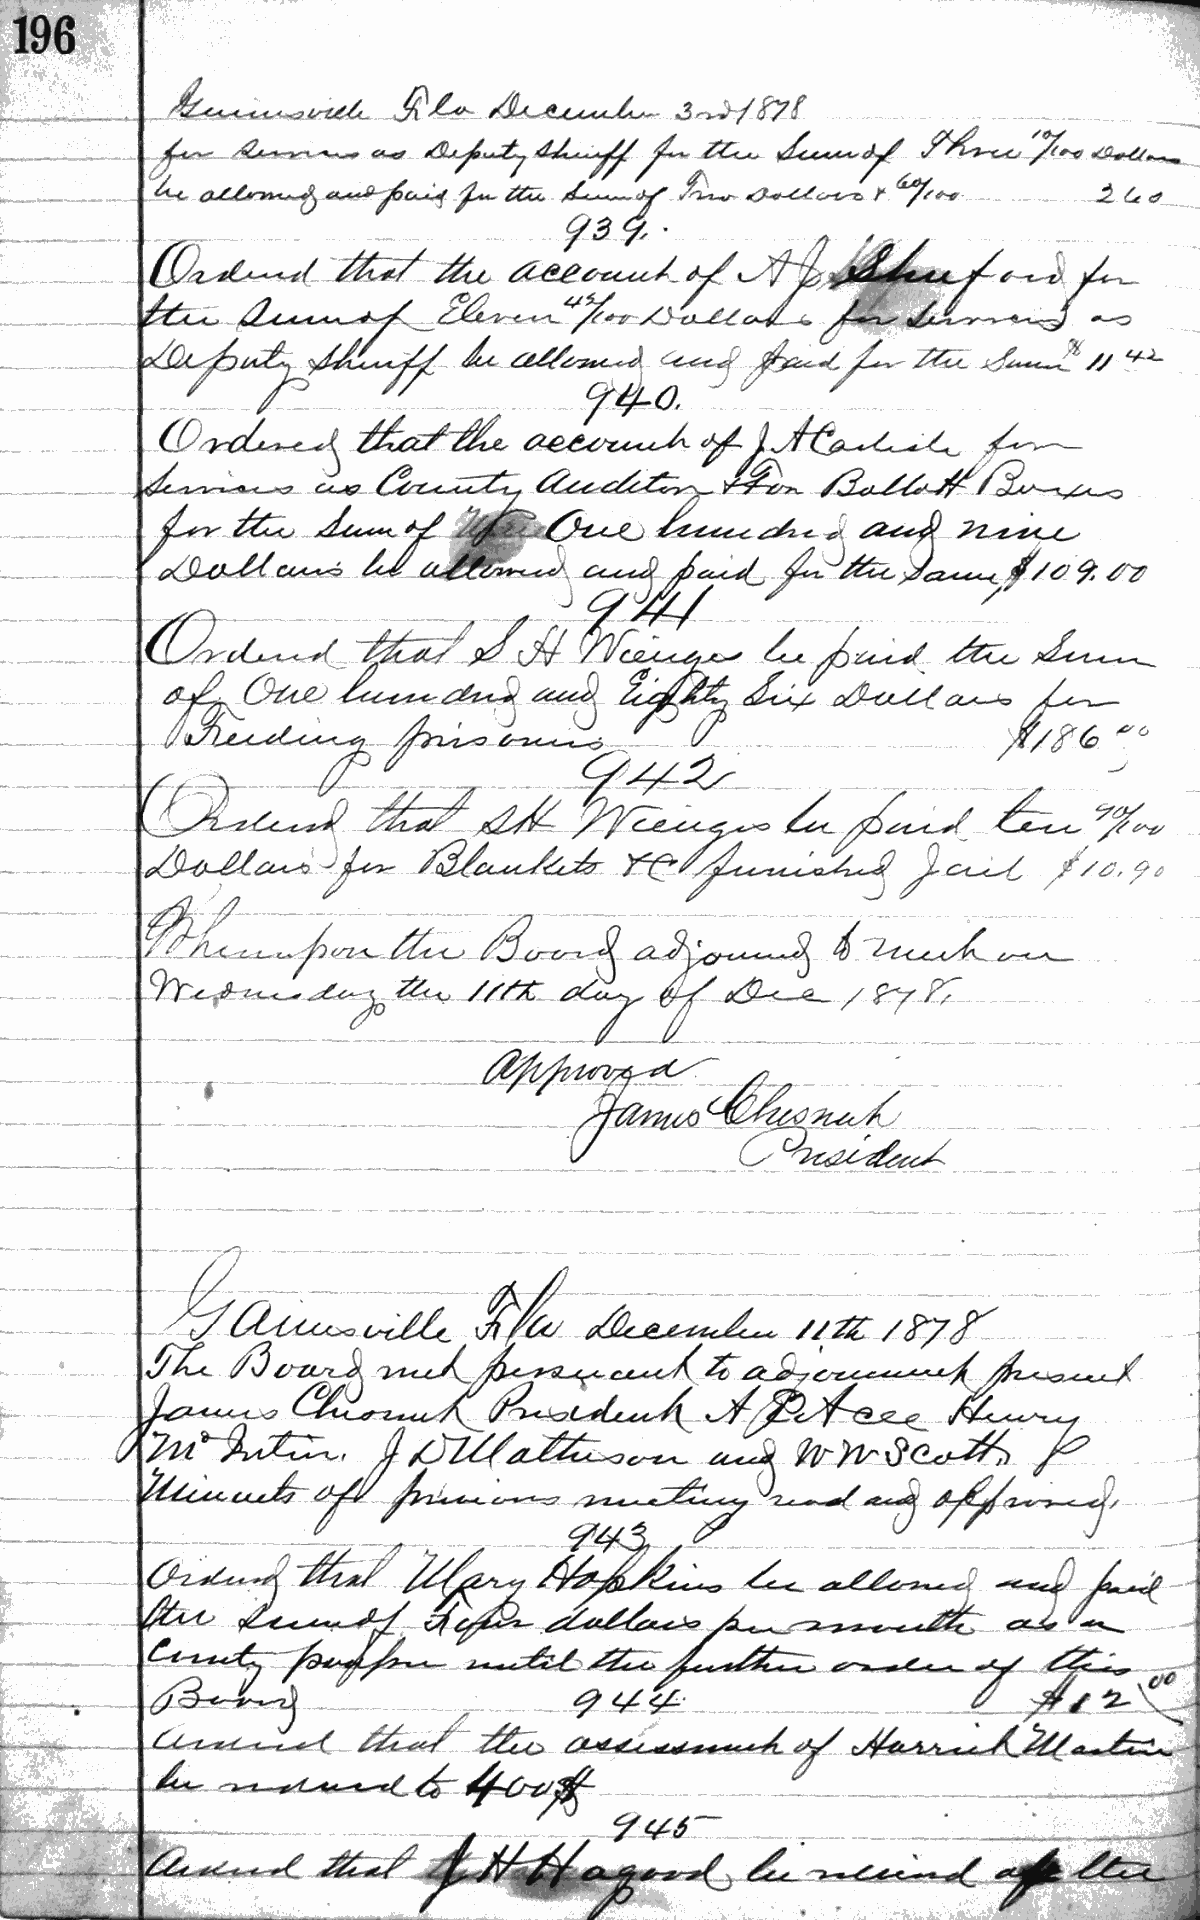 196
Gainesville Fla December 3rd 1878
for services as Deputy Sheriff for the Sum of Three 10/100 Dollars
be allowed and paid for the Sum of Two Dollars & 60/100 2 60
939.
Ordered that the account of A J Shuford for
the Sum of Eleven 42/100 Dollars for Services as
Deputy Sheriff be allowed and paid for the Same $ 11 42
940.
Ordered that the account of J A Carlisle for
Services as County Auditor & For Ballott Boxes
for the Sum of One hundred and nine
Dollars be allowed and paid for the Same, $109.00
941
Ordered that S H Wienges be paid the Sum
of One hundred and Eighty Six Dollars for
Feeding prisoners $186 00
942
Ordered that S H Wienges be paid ten 90/100
Dollars for Blankets &C furnished Jail $10.90
Whereupon the Board adjourned to meet on
Wednesday the 11th day of Dec 1878.
Approved
James Chesnut
President
Gainesville Fla December 11th 1878
The Board met persuant to adjournment present
James Chesnut President A Henry
J D Matheson and W W Scott.
Minuets of previous meeting read and approved.
943
Ordered that Mary Hopkins be allowed and paid
the Sum of Four dollars per month as a
County pauper until the further order of this
Board $12 00
944
Ordered that the assessment of Harriet Martin
be reduced to 400$
945
Ordered that J H Hagood be relieved of the